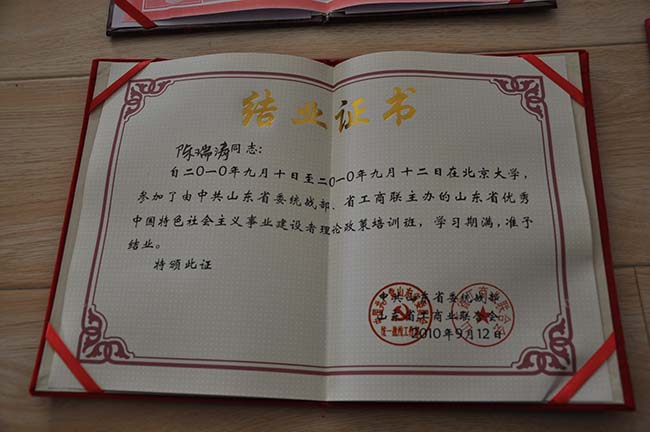 结业证书
陈瑞涛同志：
自二〇一〇年九月十日至二〇一〇年九月十二日在北京大学，
参加了由中共山东省委统战部、省工商联主办的山东省优秀
中国特色社会主义事业建设者理论政策培训班，学习期满，准予
结业。
特颁此证
中共山东省委统战部
山东省工商业联合会
2010年9月12日